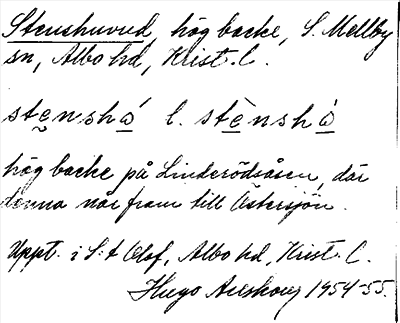 Stenshuvud, hög backe, S. Mellby
sn, Albo hd, Krist. L.
stenshó̲ l. stènshó̲
hög backe på Linderödsåsen, där
denna når fram till Östersjön.
Uppt. i S:t Olof, Albo hd, Krist. L.
Hugo Areskoug 1954-55.